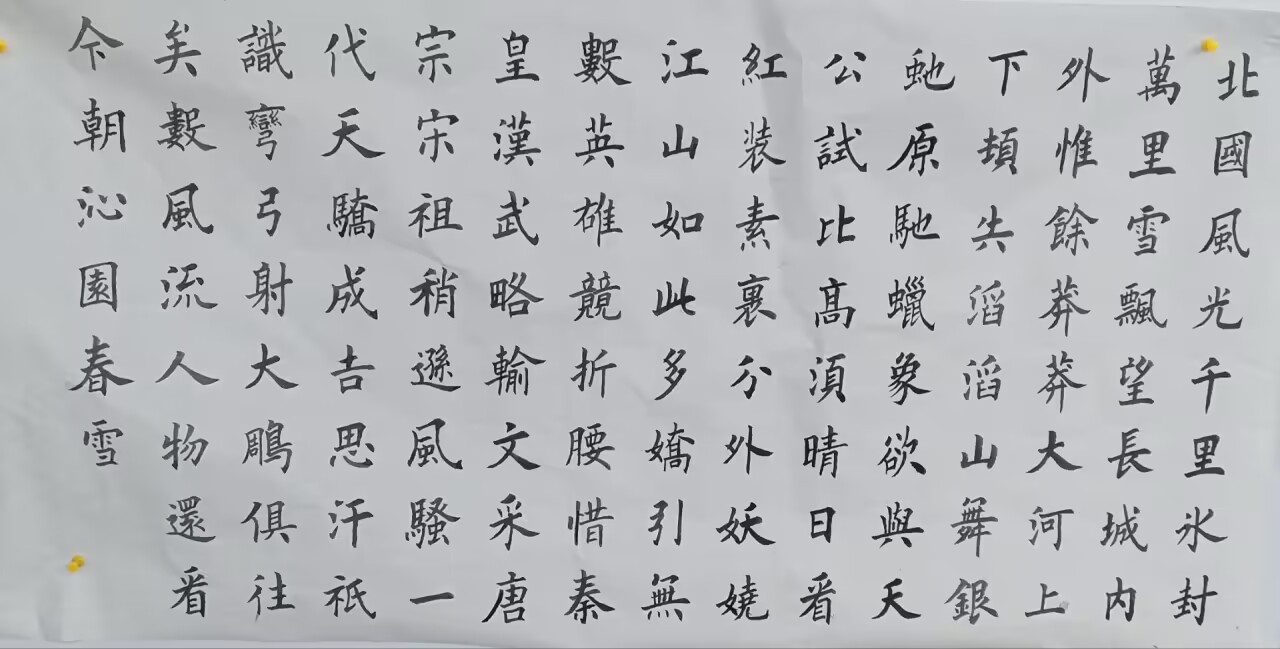 北國風光千里氷封
萬里雪飄望長城内
外惟餘莽莽大河上
下頓失滔滔山舞銀
虵原馳蠟象欲與天
公試比髙須晴日看
紅装素裹分外妖嬈
江山如此多嬌引無
數英雄競折腰惜秦
皇漢武略輸文采唐
宗宋祖稍遜風騷一
代天驕成吉思汗祇
識彎弓射大鵰俱往
矣數風流人物還看
今朝沁園春雪